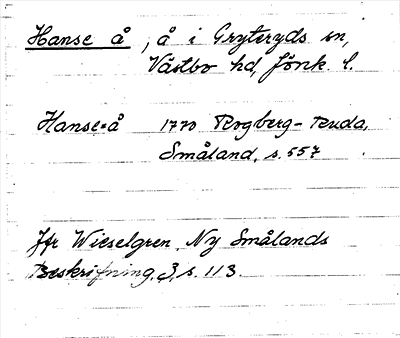 Hanse å, å i Gryteryds sn,
Västbo hd, Jönk. l.
Hanse=å 1770 Rogberg-Ruda,
Småland, s. 557.
Jfr Wieselgren, Ny Smålands
Beskrifning, 3, s. 113.